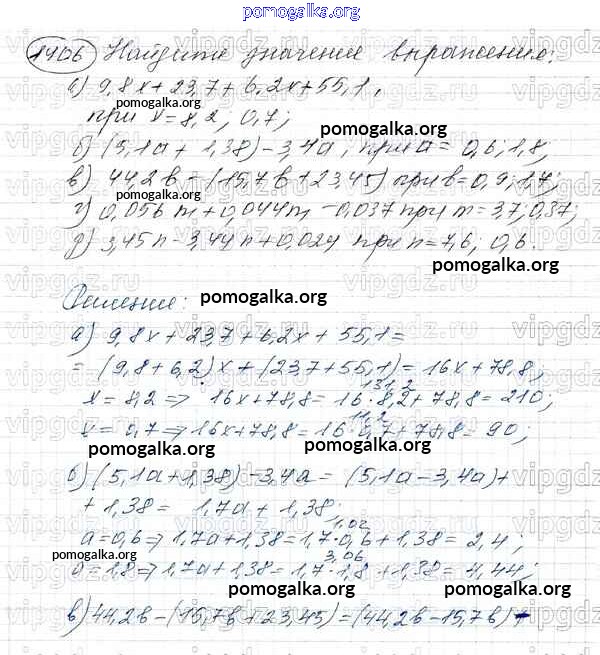 pomogalka.org
1406 Найдите значение выражения:
а) 9,8x + 23,7 + 6,2x + 55,1,
pomogalka.org
при x = 8,2; 0,7;
pomogalka.org
б) (5,1a + 1,38) - 3,4a, при a = 0,6; 1,8;
в) 44,2b - (15,7b + 23,45) при b = 0,9; 1,7;
pomogalka.org
г) 0,056m + 0,044m - 0,037 при m = 3,7; 0,37;
д) 3,45n - 3,44n + 0,024 при n = 7,6; 0,6.
pomogalka.org
Решение:
pomogalka.org
а) 9,8x + 23,7 + 6,2x + 55,1 =
= (9,8 + 6,2)x + (23,7 + 55,1) = 16x + 78,8;
131,2
x = 8,2 => 16x + 78,8 = 16·8,2 + 78,8 = 210;
11,2
x = 0,7 => 16x + 78,8 = 16·0,7 + 78,8 = 90;
pomogalka.org
pomogalka.org
б) (5,1a + 1,38) - 3,4a = (5,1a - 3,4a) +
+ 1,38 = 1,7a + 1,38;
1,02
a = 0,6 => 1,7a + 1,38 = 1,7·0,6 + 1,38 = 2,4;
pomogalka.org
3,06
a = 1,8 => 1,7a + 1,38 = 1,7·1,8 + 1,38 = 4,44;
pomogalka.org
в) 44,2b - (15,7b + 23,45) = (44,2b - 15,7b) -
vipgdz